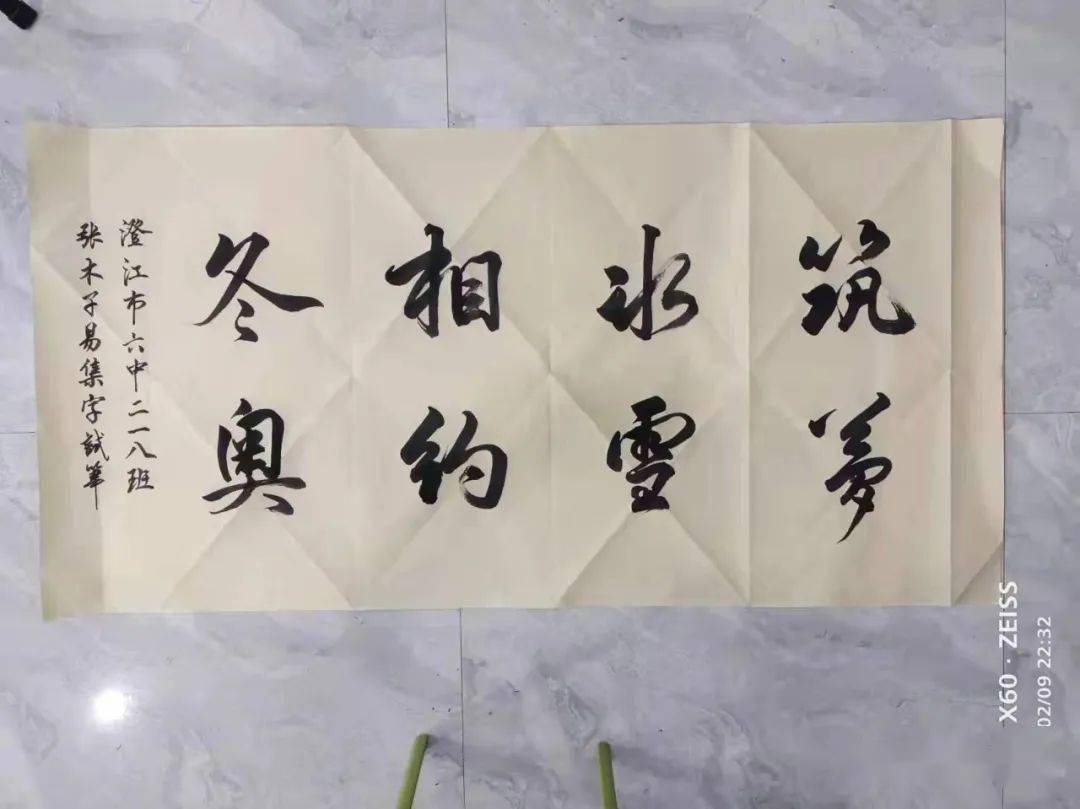 筑梦
冰雪
相约
冬奥
澄江市六中二一八班
张木子易集字试笔
X60 · ZEISS
02/09 22:32